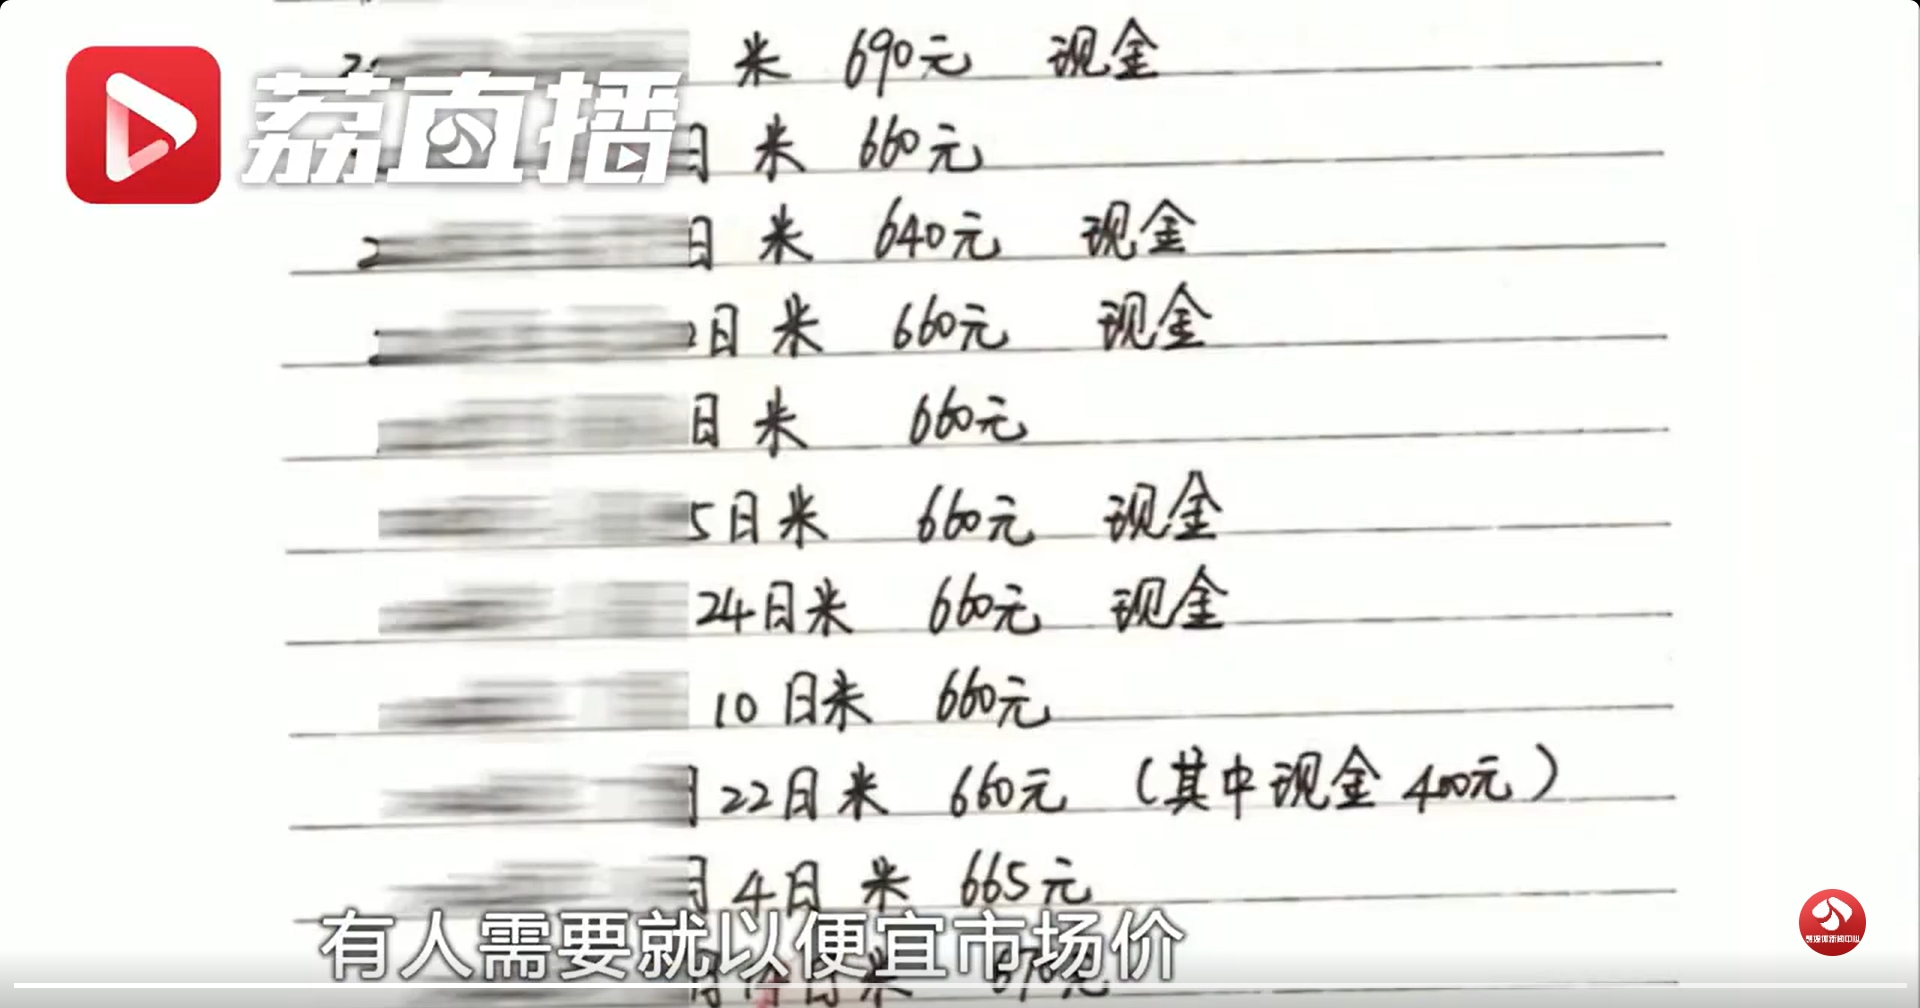 荔直播
米 690元 现金
日 米 660元
2 日 米 640元 现金
2日 米 660元 现金
日 米 660元
5日米 660元 现金
24日米 660元 现金
10日米 660元
月22日米 660元 (其中现金400元)
月4日 米 665元
有人需要就以便宜市场价
日米 670元